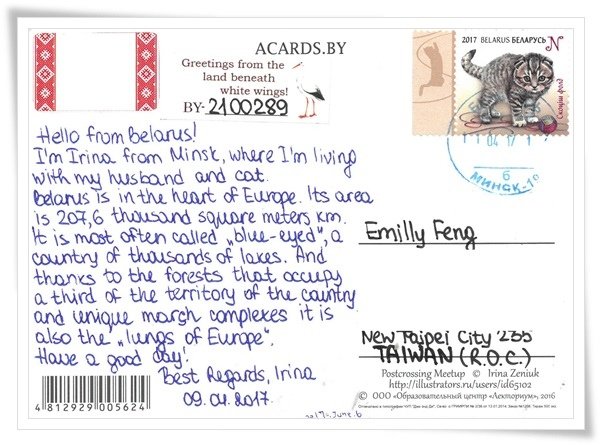 ACARDS.BY
Greetings from the
land beneath
white wings!
BY-2100289
2017 BELARUS БЕЛАРУСЬ N
11 04 17 1
6
МИНСК-1
Hello from Belarus!
I'm Irina from Minsk, where I'm living
with my husband and cat.
Belarus is in the heart of Europe. Its area
is 207,6 thousand square meters km.
It is most often called „blue-eyed", a
country of thousands of lakes. And
thanks to the forests that occupy
a third of the territory of the country
and unique marsh complexes it is
also the „lungs of Europe".
Have a good day!
Best Regards, Irina
09.04.2017.
Emilly Feng
New Taipei City 235
TAIWAN (R.O.C.)
Postcrossing Meetup © Irina Zeniuk
http://illustrators.ru/users/id65102
© ООО «Образовательный центр «Лекториум», 2016
4 812929 005624
2017. June. 6